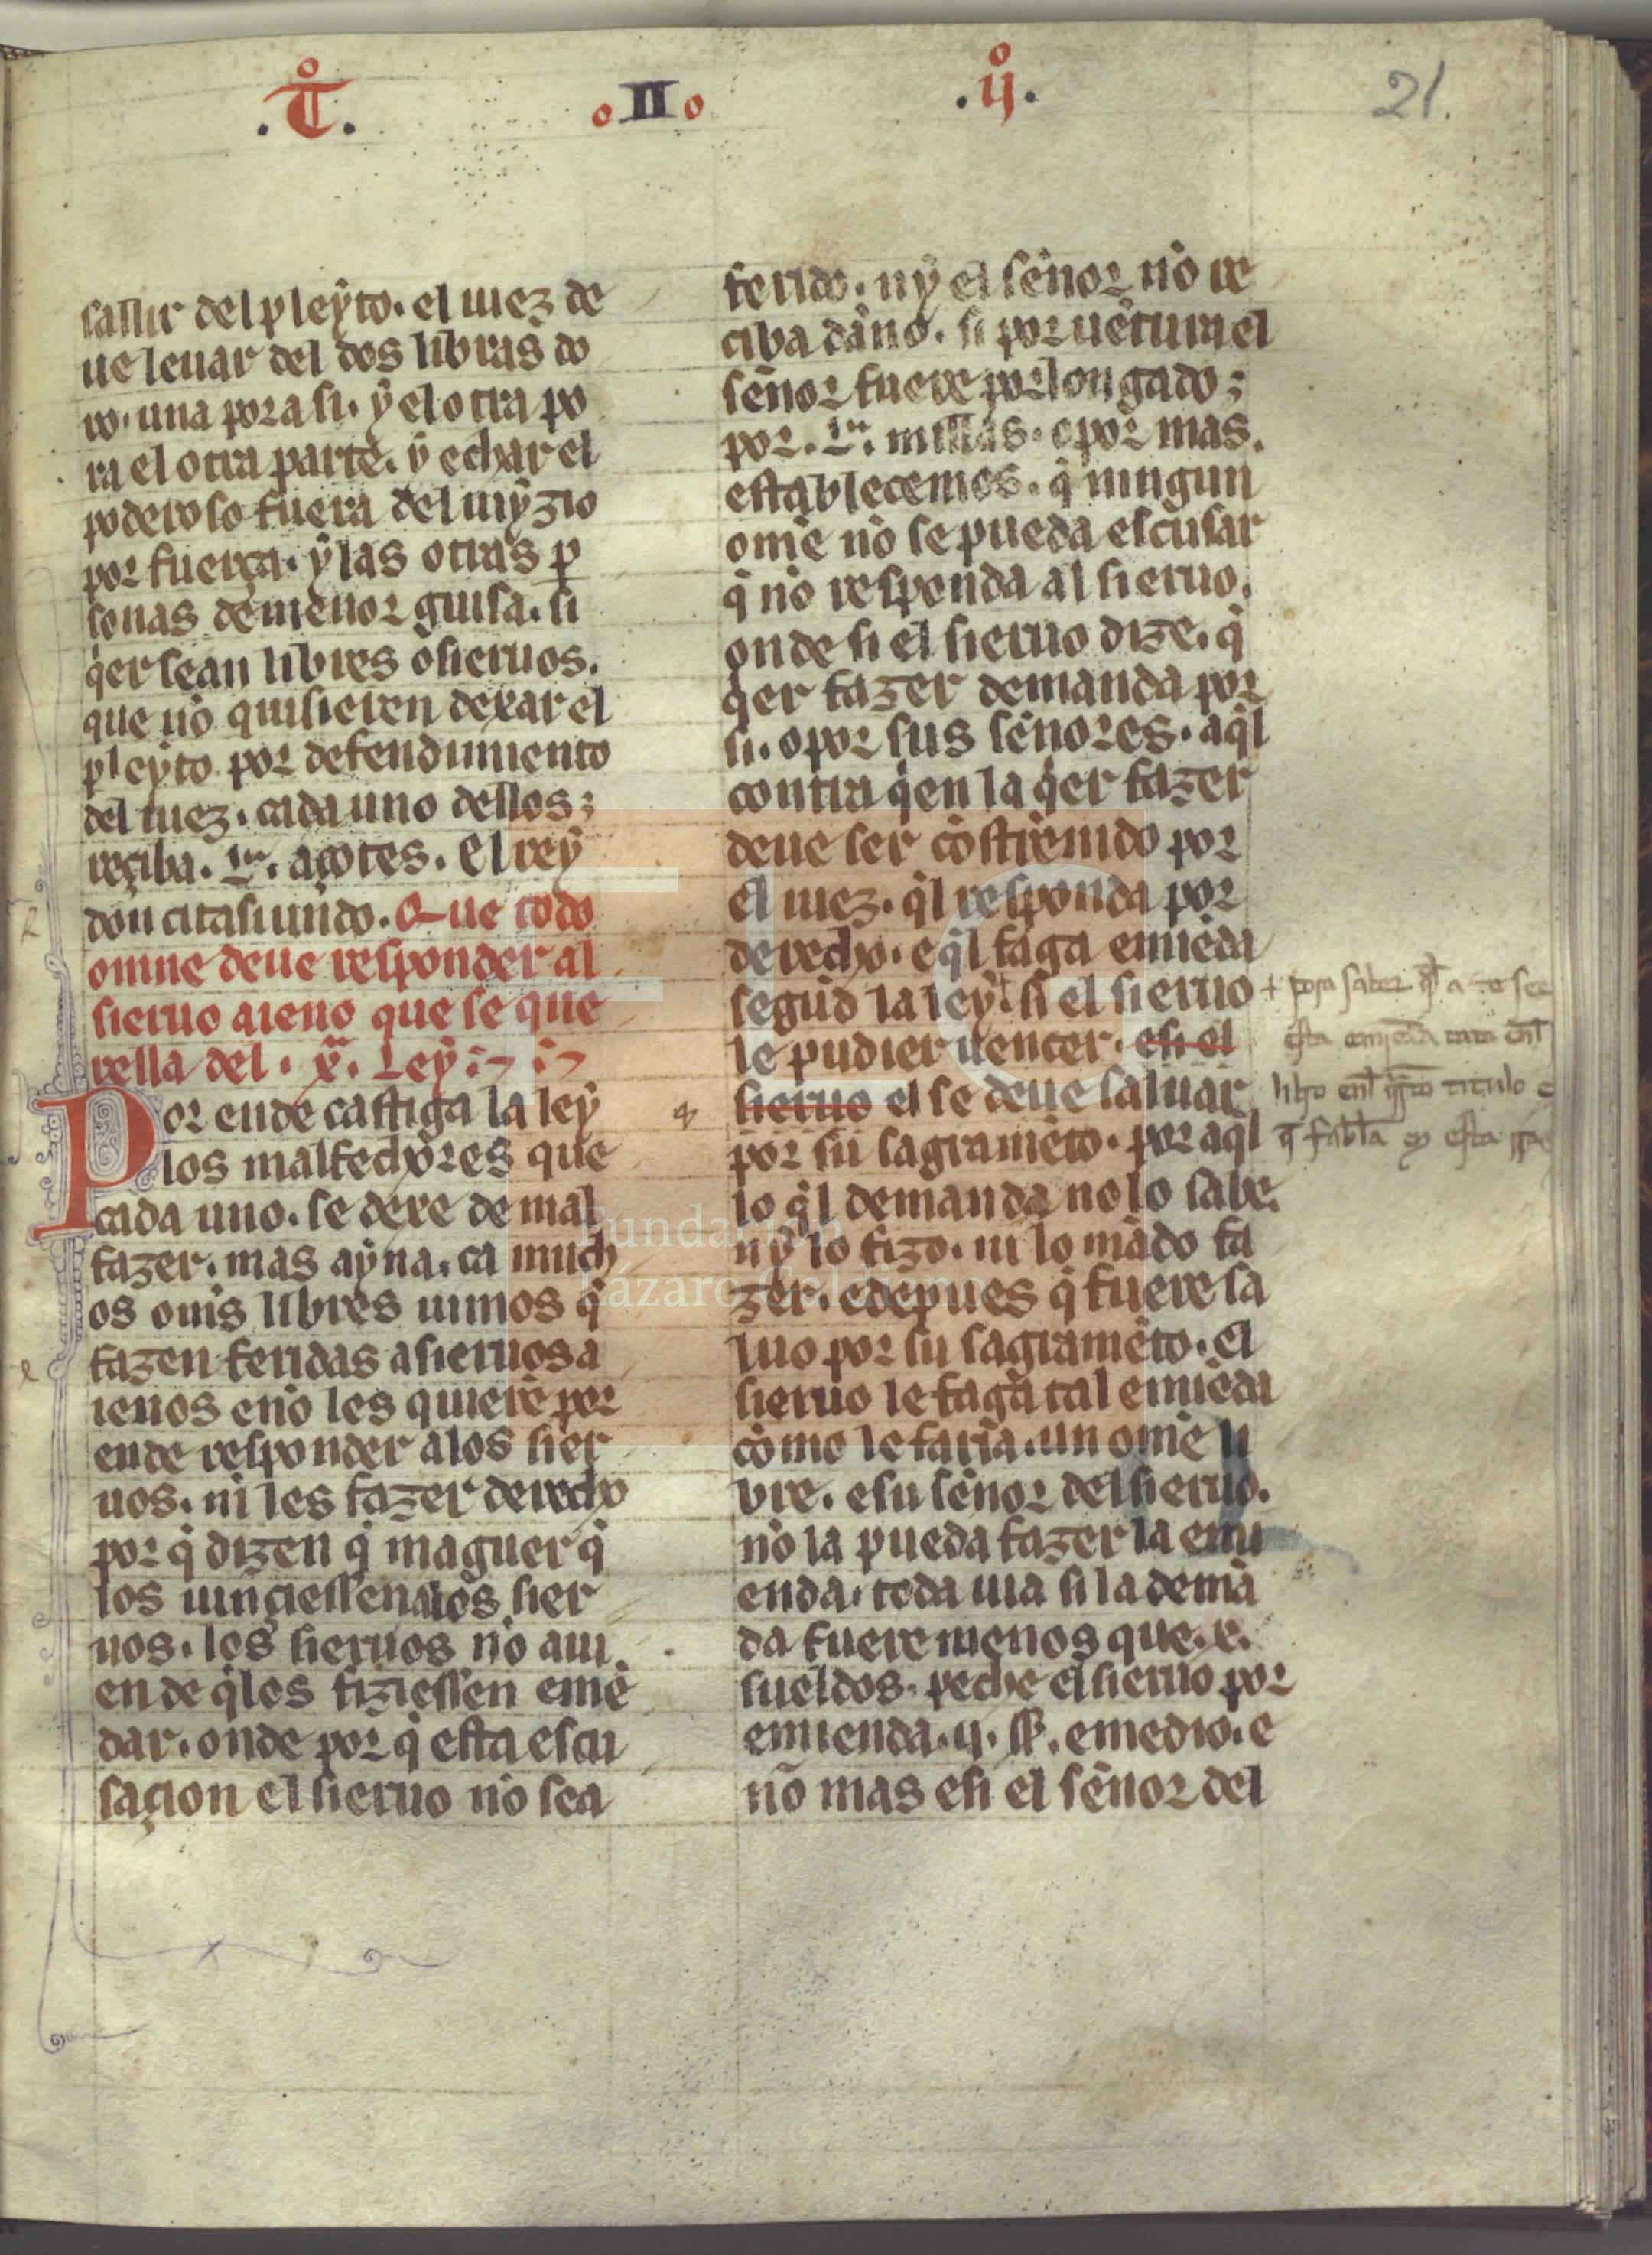 .T͏̊. II .ij̊. 21.
sallir del pleyto. el iuez de
ue leuar del dos libras do
ro. una pora si. ẏ el otra po
ra el otra parte. ẏ echar el
poderoso fuera del iuẏzio
por fuerça. ẏ las otras ꝑ
sonas de menor guisa. si
q̇er sean libres o sieruos.
que nō quisieren dexar el
pleẏto por defendimiento
del iuez. cada uno dellos;
reçiba. L. açotes. El reẏ
don citasiundo. Que todo
omne deue responder al
sieruo aieno que se que
rella del. x̄. Leẏ
Por ende castiga la leẏ
los malfechores que
cada uno. se dexe de mal
fazer. mas aẏna. ca much
os om̄s libres uimos q̄
fazen feridas a sieruos a
ienos e nō les quierē por
ende responder a los sier
uos. ni les fazer derecho
por q̄ dizen q̄ maguer q̄
los uinçiessen a los sier
uos. los sieruos nō aui
en de q̄ los fiziessen emē
dar. onde por q̄ esta escu
saçion el sieruo nō sea
ferido. nẏ el señor nō re
ciba daño. si por uētura el
señor fuere porlongado;
por. L. millas. o por mas.
establecemos. q̄ ningun
om̄e nō se pueda escusar
q̄ nō responda al sieruo.
onde si el sieruo dize. q̄
q̇er fazer demanda por
si. o por sus señores. aq̄l
contra q̇en la q̇er fazer
deue ser cōstrēnido por
el iuez. q̄l responda por
derecho. e q̄l faga emiēda
segūd la leẏ. si el sieruo
le pudier uencer. e si el
sieruo el se deue saluar
por su sagramēto. por aq̄l
lo q̄l demanda no lo sabe.
nẏ lo fizo. ni lo mādo fa
zer. e depues q̄ fuere sa
luo por su sagramēto. el
sieruo le faga tal emiēda
cōmo le faria. un om̄e li
bre. e su señor del sieruo.
nō la pueda fazer la emi
enda. toda uia si la demā
da fuere menos que. x.
sueldos. peche el sieruo por
emienda. ij. ss. e medio. e
nō mas e si el señor del
+ pora saber
esta emienda cata enl
libro enl titulo
q̄ fabla esta
Fundación
Lázaro Galdiano